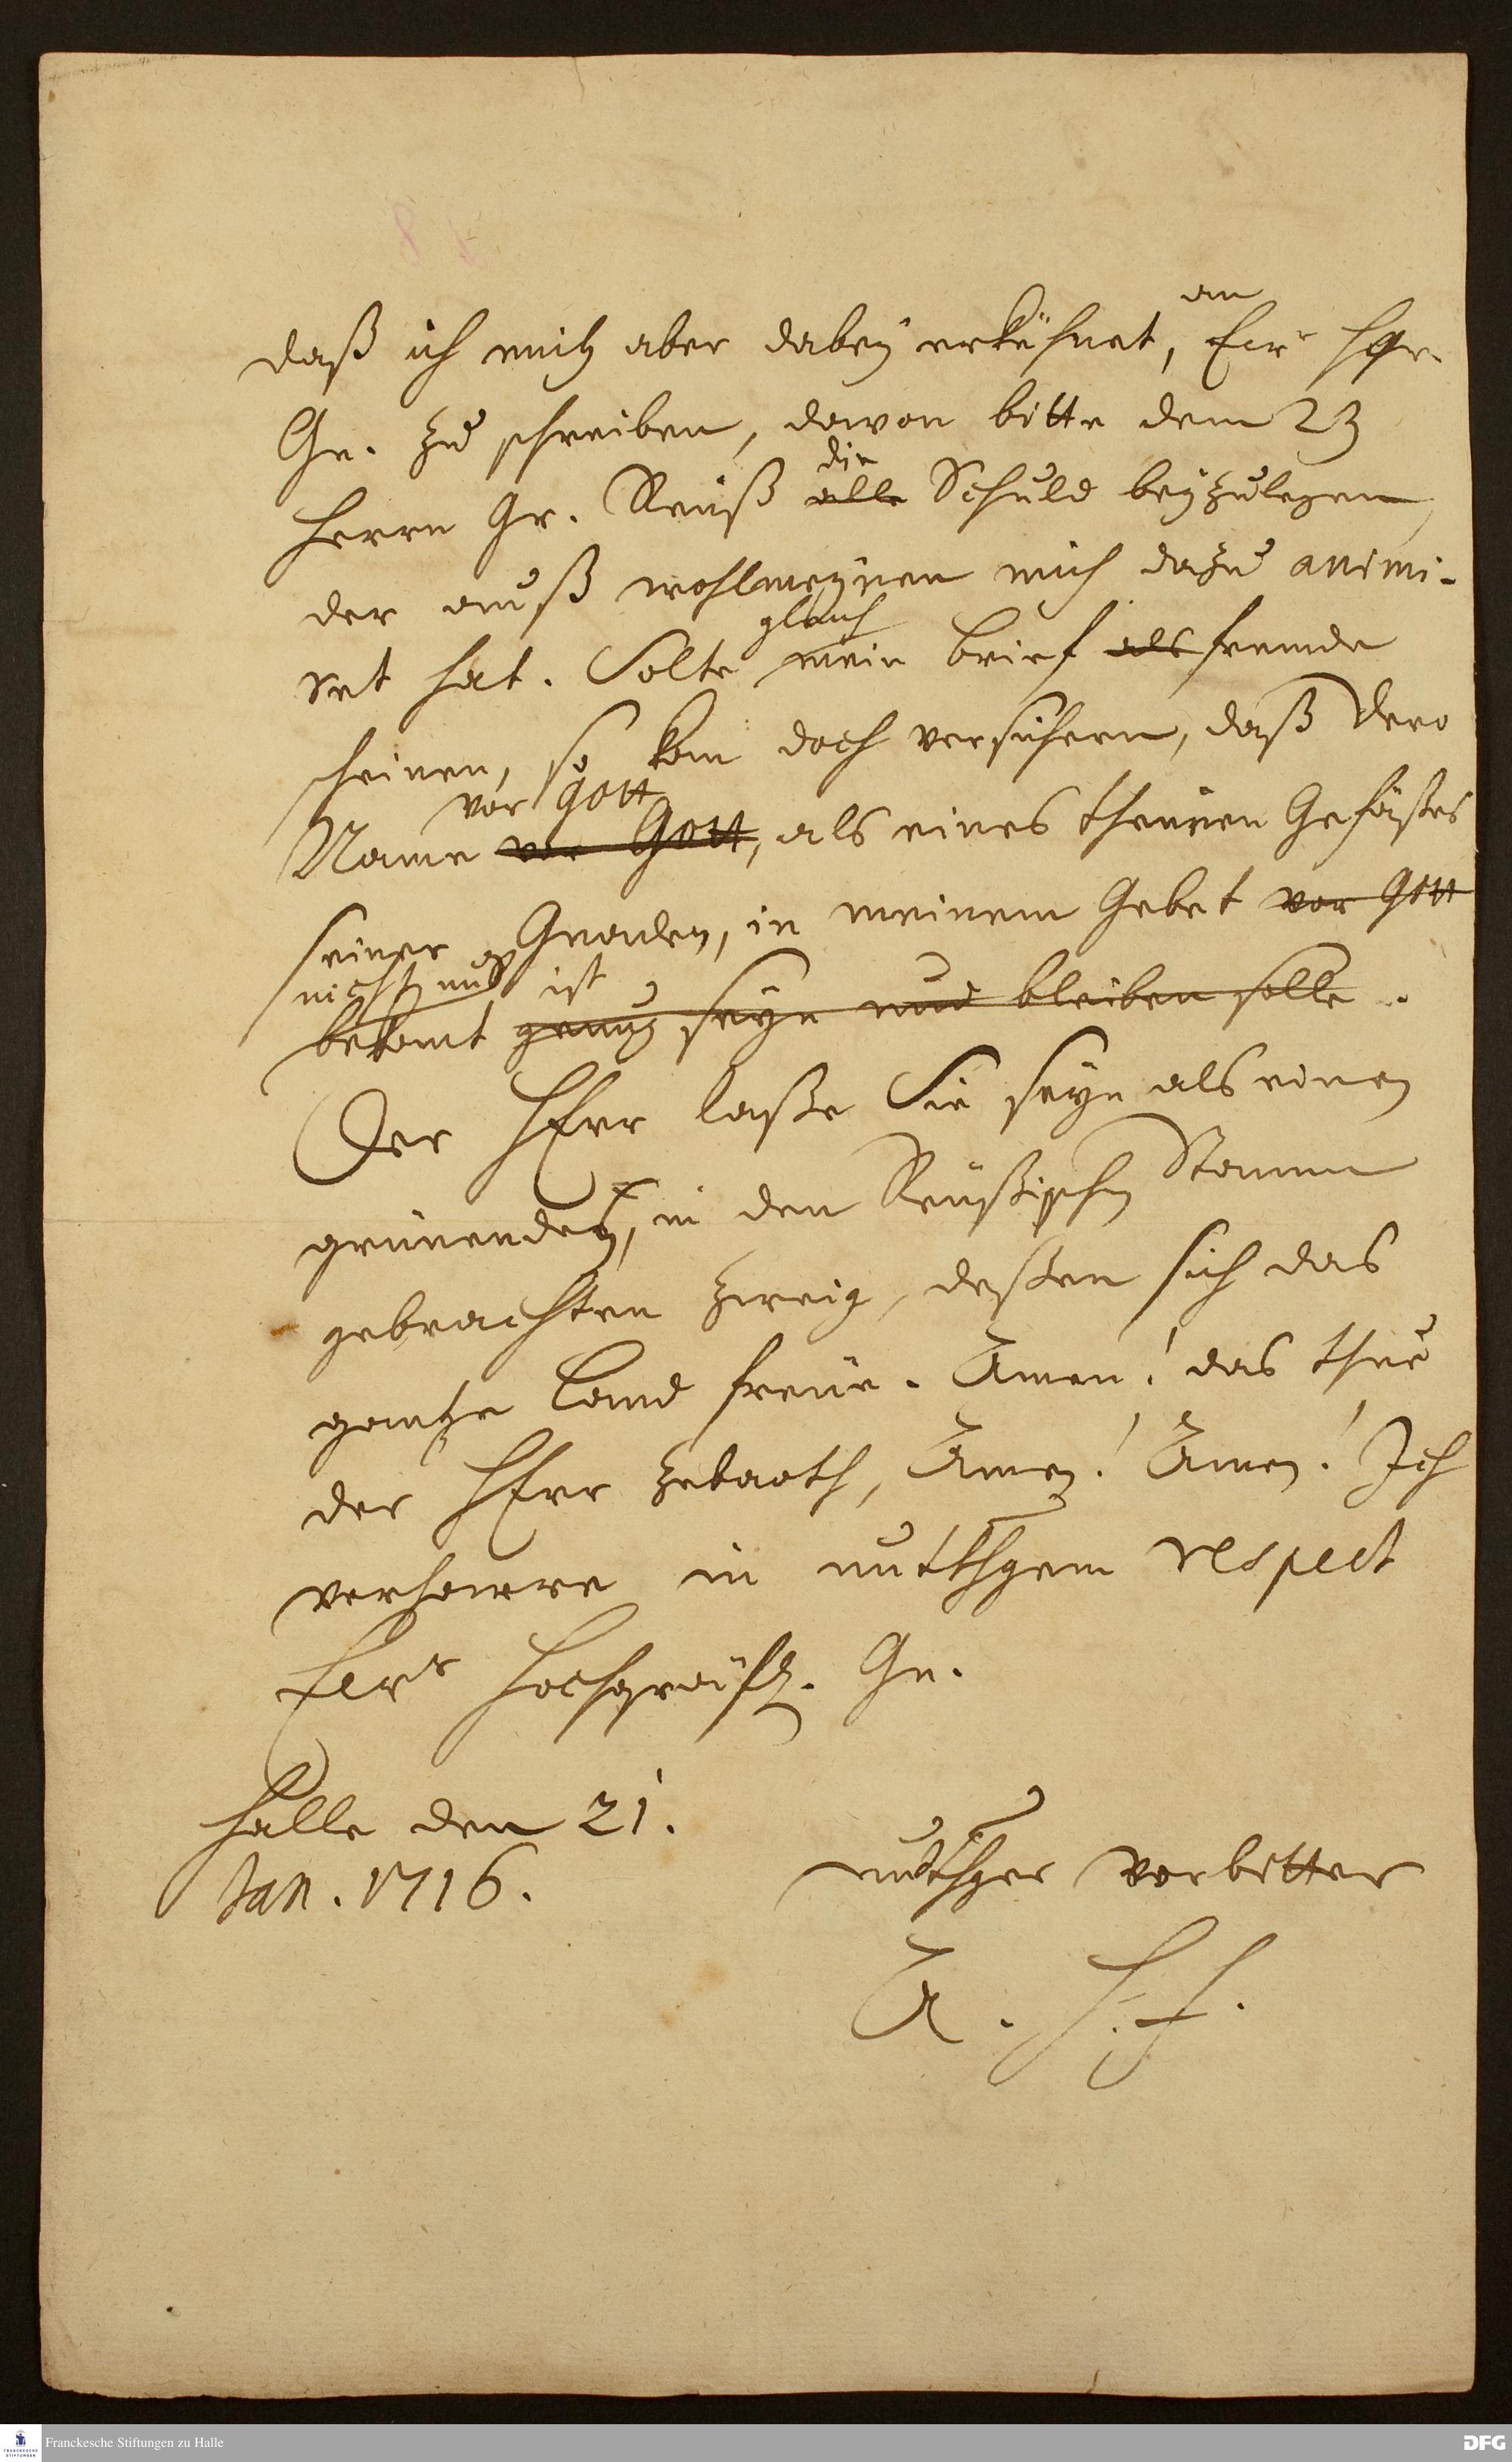 an
daß ich mich aber dabey erkühnet, Ewr Hgr.
Gn. zu schreiben, davon bitte dem 23
Herrn Gr. Reuß die alle Schuld beyzulegen,
der auß wohlmeynen mich dazu animi-
ret hat. Solte gleich mein brief als fremde
scheinen, so kan doch versichern, daß Dero
vor Gott
Name vor Gott, als eines theuren Gefäßes
seiner Gnaden, in meinem Gebet vor Gott
nicht neu ist
bekomt genug seyn und bleiben solle.
Der HErr laße Sie seyn als einen
grünenden, in den Reußischen Stamm
gebrachten Zweig, deßen sich das
gantze Land freue. Amen! das thue
der HErr Zebaoth, Amen! Amen! Ich
verharre in unterthgem respect
Ewr Hochgräfl. Gn.
Halle den 21.
Jan. 1716.
unterthger Vorbitter
A. H. F.
Franckesche Stiftungen zu Halle
DFG